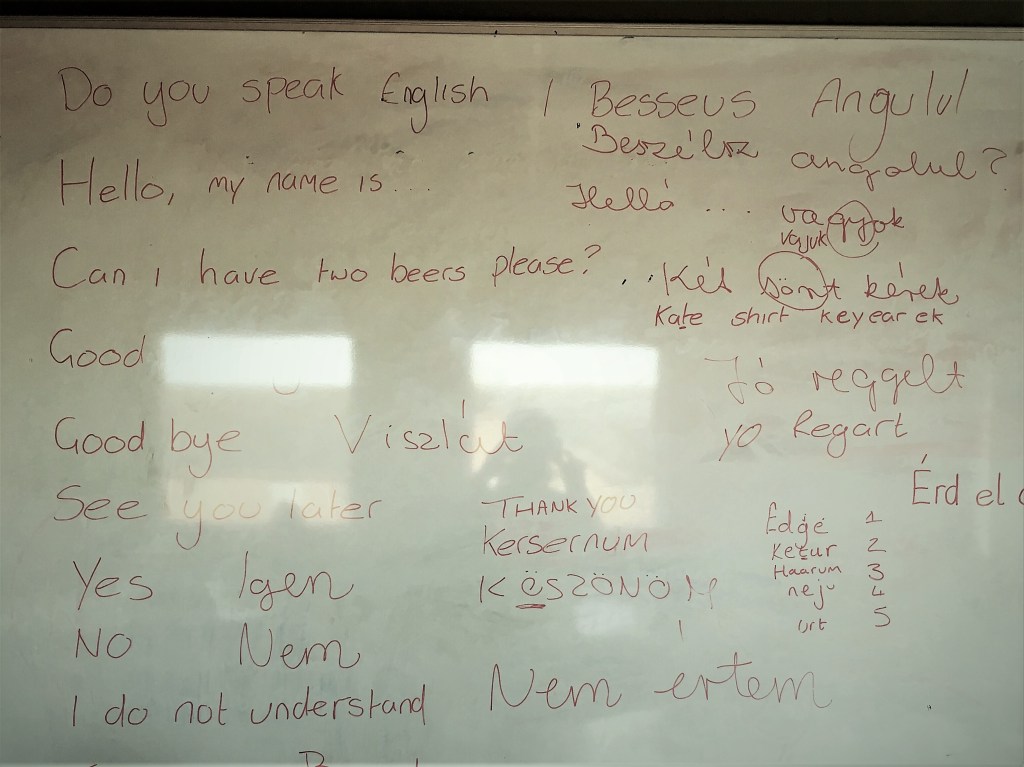 Do you speak English / Besseus Angulul
Beszélsz angolul?
Hello, my name is.... Helló ... vagyok
vajuk
Can i have two beers please? Két sört kérek
Kate shirt keyear ek
Good Jó reggelt
yo Regart
Good bye Viszlát
Érd el
See you later THANK YOU
Kersernum
KËSZÖNÖM
Edge 1
Ketur 2
Haarum 3
neju 4
urt 5
Yes Igen
NO Nem
I do not understand Nem ertem